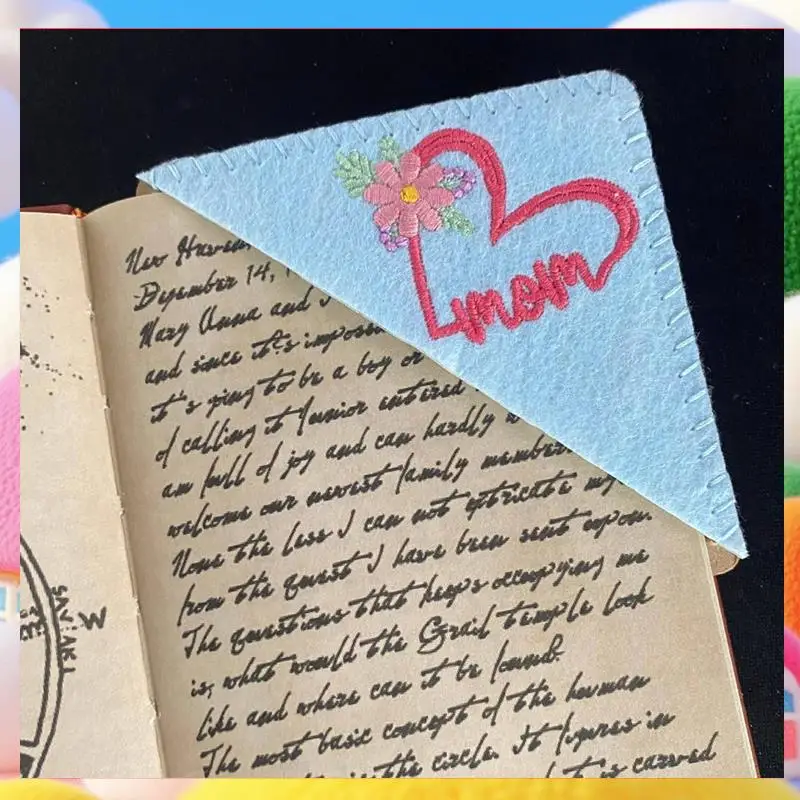 mom
New Haven
December 14, 1
Mary Anna and I
and since it's imposs
it's ping to be a boy or
of calling it Junior entered
am full of joy and can hardly
welcome our newest family member
None the less I can not extricate my
from the quest I have been sent upon.
The questions that keeps occupying me
is, what would the Grail temple look
like and where can it be found?
The most basic concept of the human
is the circle. It figures in
it is carved
SAVIAKI